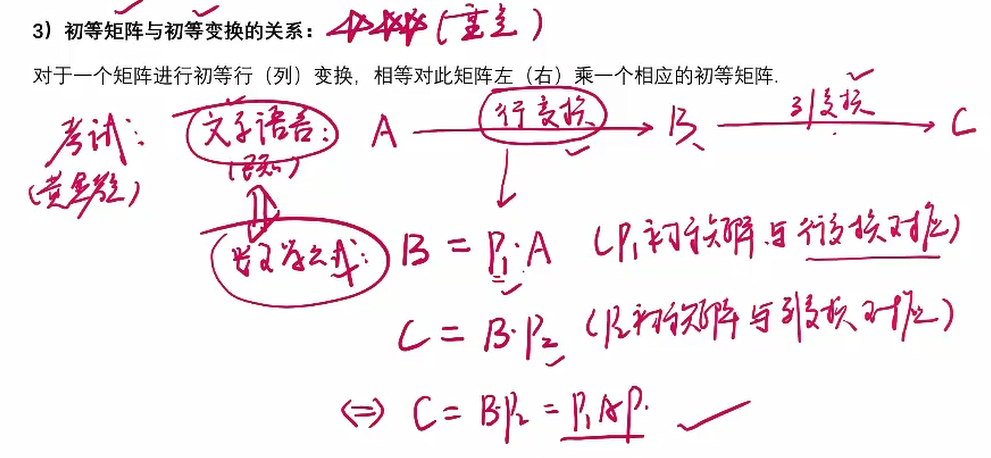 3）初等矩阵与初等变换的关系：（重点）
对于一个矩阵进行初等行（列）变换，相等对此矩阵左（右）乘一个相应的初等矩阵.
考试： 文字语言： A 行变换 B 列变换 C
（黄金题） （已知）
数学公式： B = P₁·A （P₁初等矩阵与行变换对应）
C = B·P₂ （P₂初等矩阵与列变换对应）
⇔ C = B·P₂ = P₁AP.